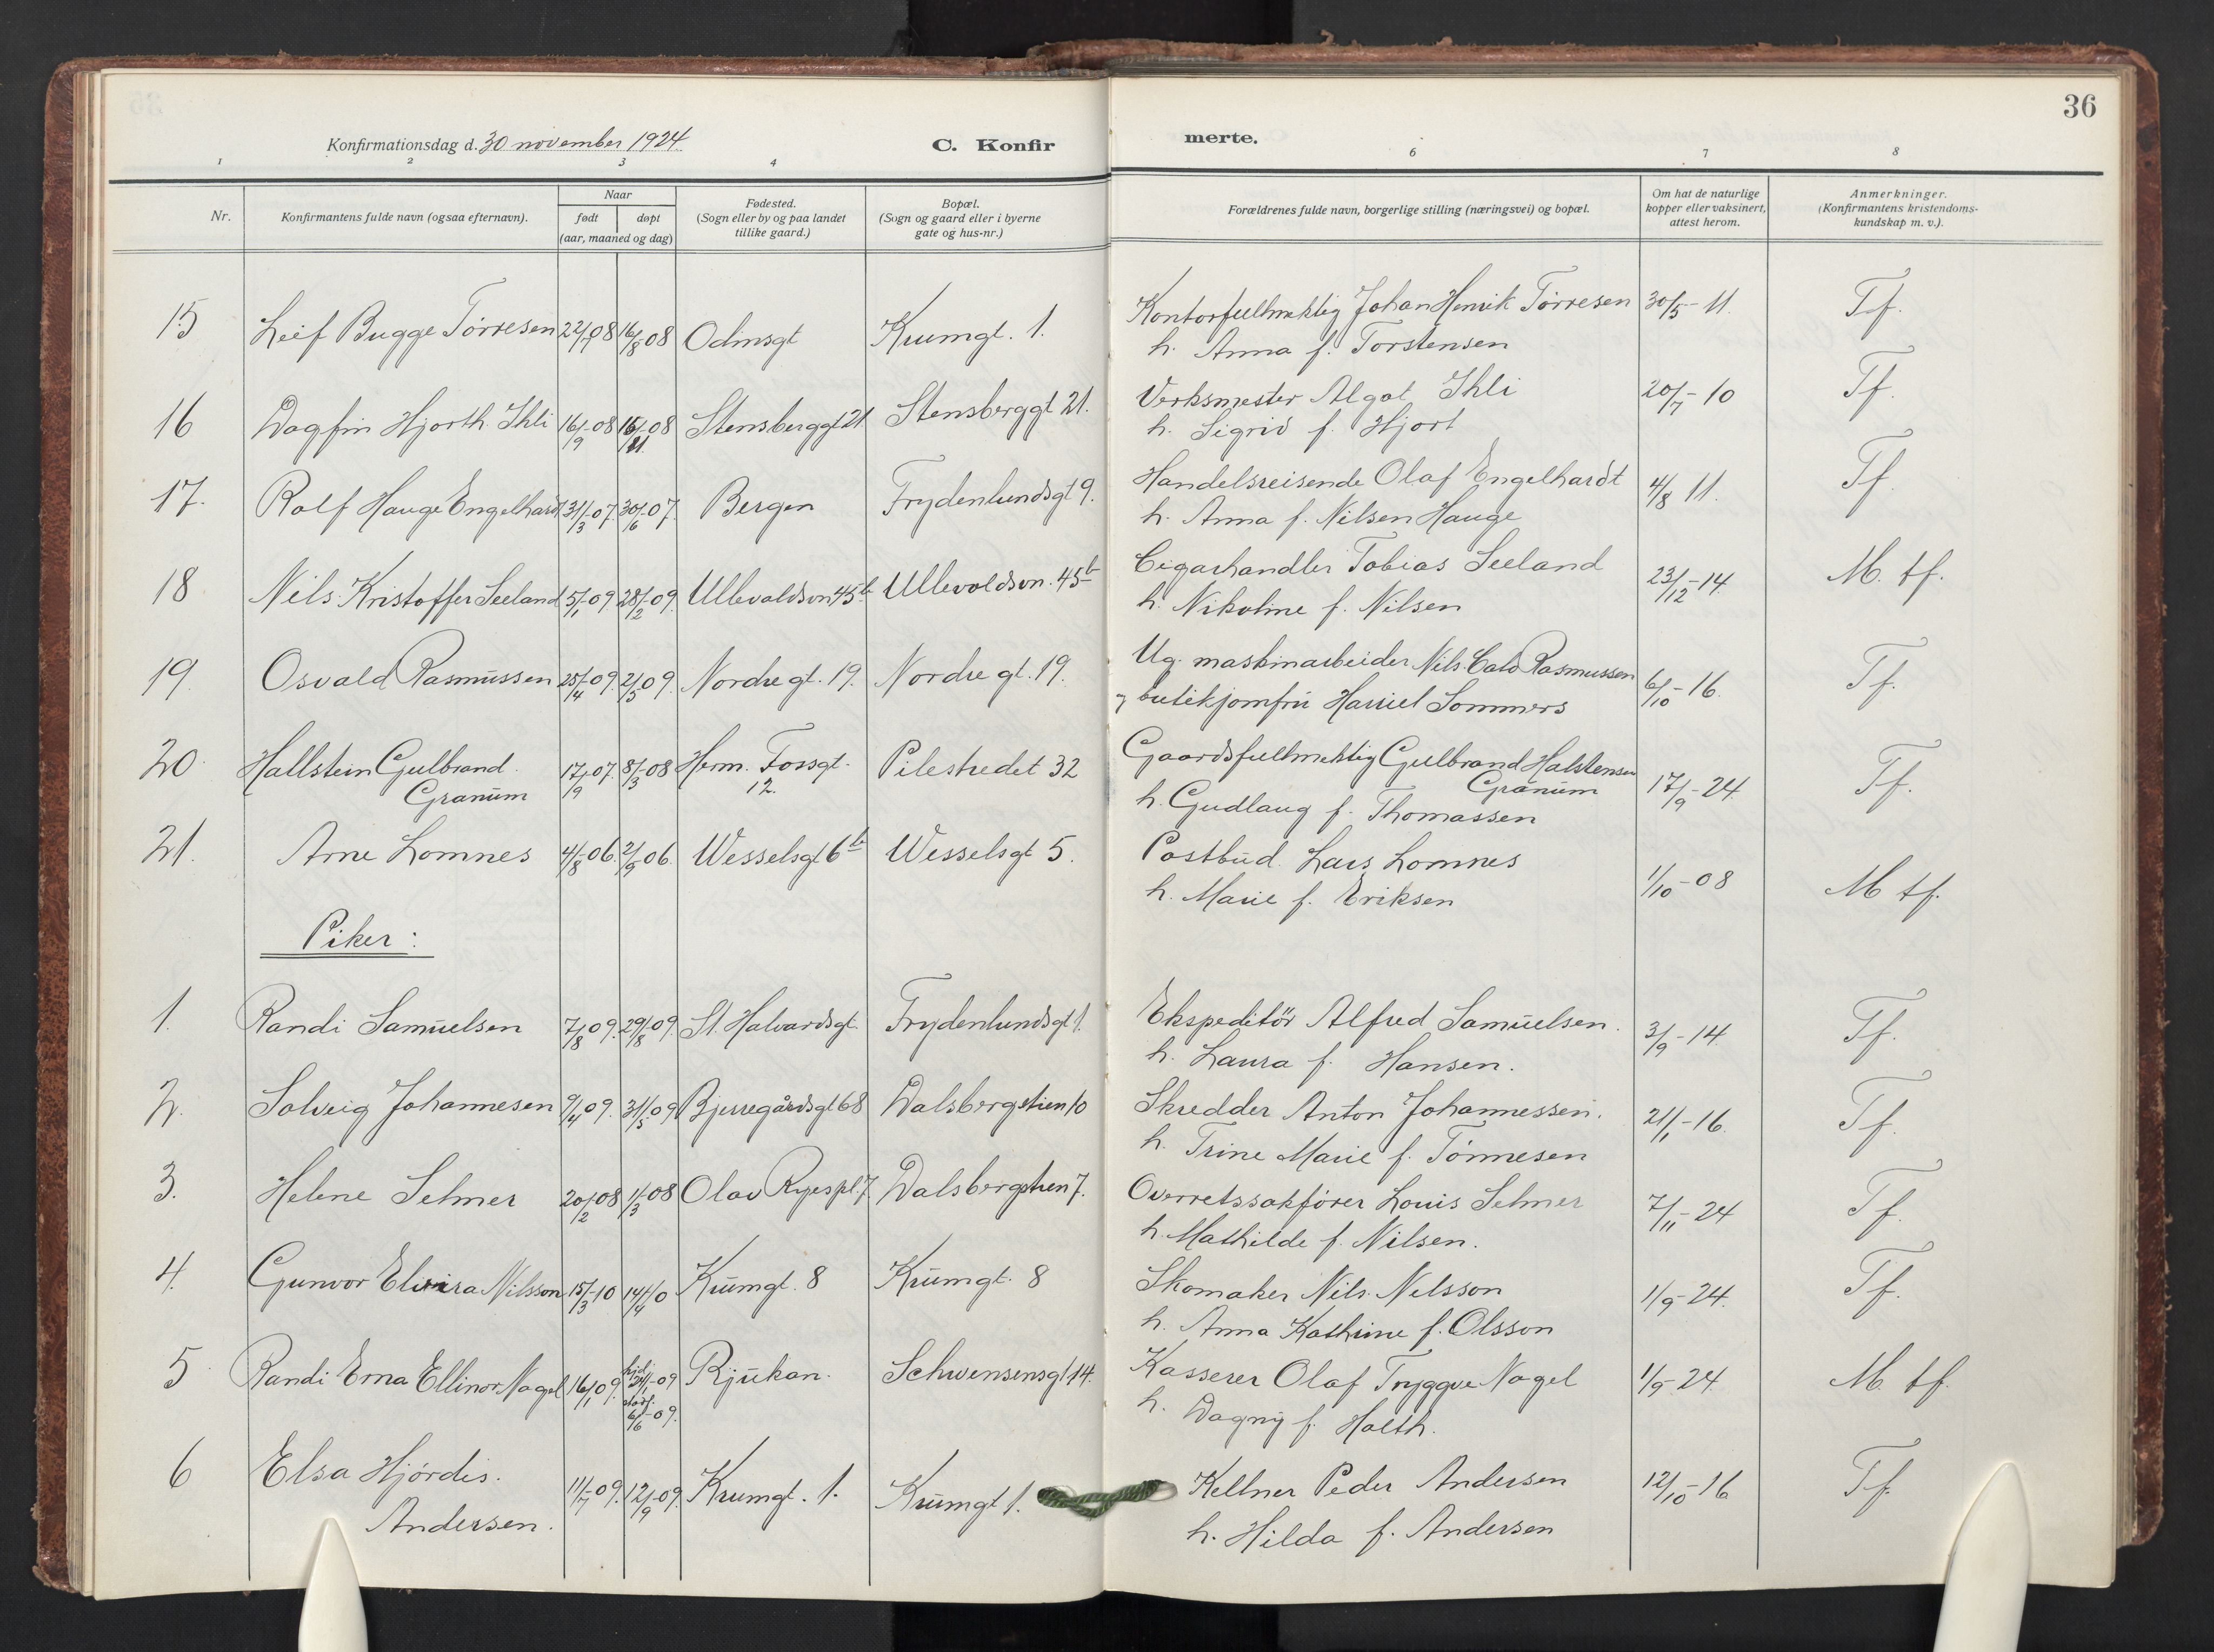 36
Konfirmationsdag d. 30 november 1924.
C. Konfir merte.
1 2 3 4 6 7 8
Nr.
Konfirmantens fulde navn (ogsaa efternavn).
Naar
født døpt
(aar, maaned og dag)
Fødested.
(Sogn eller by og paa landet
tillike gaard.)
Bopæl.
(Sogn og gaard eller i byerne
gate og hus-nr.)
Forældrenes fulde navn, borgerlige stilling (næringsvei) og bopæl.
Om hat de naturlige
kopper eller vaksinert,
attest herom.
Anmerkninger.
(Konfirmantens kristendoms-
kundskap m. v.).
15 Leif Bugge Tørresen 22/7 08 16/8 08 Odinsgt Krumgt. 1. Kontorfullmektig Johan Henrik Tørresen 30/5-11. Tf.
h. Anna f. Torstensen
16 Dagfin Hjorth Ihli 16/9-08 15/11-08 Stensberggt 21 Stensberggt 21. Verksmester Algot Ihli 20/7-10 Tf.
h. Sigrid f. Hjort
17. Rolf Hauge Engelhardt 31/3-07. 30/6-07. Bergen Frydenlundsgt 9. Handelsreisende Olaf Engelhardt 4/8 11. Tf.
h. Anna f. Nilsen Hauge
18 Nils Kristoffer Seeland 5/1-09 28/2-09. Ullevoldsvn 45b Ullevoldsvn. 45b Cigarhandler Tobias Seeland 23/12-14. M. tf.
h. Nikoline f. Nilsen
19. Osvald Rasmussen 25/4-09. 2/5 09. Nordre gt. 19. Nordre gt. 19. Ug. maskinarbeider Nils Calo Rasmussen 6/10-16. Tf.
og butikjomfru Harriet Sommers
20. Hallstein Gulbrand 17/9-07. 8/3-08 Herm. Fossgt. Pilestredet 32 Gaardsfullmektig Gulbrand Halstensen 17/9-24. Tf.
Granum 12. Granum
h. Gudlaug f. Thomassen
21. Arne Lomnes 4/8-06. 2/9 06. Wesselsgt 6b Wesselsgt 5. Postbud Lars Lomnes 1/10-08 M tf.
h. Marie f. Eriksen
Piker:
1. Randi Samuelsen 7/8 09. 29/8-09. St. Halvardsgt. Frydenlundsgt 1. Ekspeditör Alfred Samuelsen. 3/9-14. Tf.
h. Laura f. Hansen.
2. Solveig Johannesen 9/4 09. 31/5-09 Bjerregårdsgt 68 Dalsbergstien 10 Skredder Anton Johannessen. 21/1-16. Tf.
h. Trine Marie f. Tönnesen
3. Helene Selmer 20/2-08 1/3-08 Olav Ryespl. 7. Dalsbergstien 7. Overretssakfører Louis Selmer 7/11-24 Tf.
h. Mathilde f. Nilsen.
4. Gunvor Elvira Nilsson 15/3-10 14/4 10 Krumgt. 8 Krumgt. 8 Skomaker Nils Nilsson 1/9-24. Tf.
h. Anna Kathrine f. Olsson
5. Randi Erna Ellinor Nagel 16/1 09. hjd. 31/1-09 Rjukan. Schwensensgt 14. Kasserer Olaf Tryggve Nagel 1/9-24. M. tf.
stadf. 6/6-09. h. Dagny f. Holth.
6 Elsa Hjördis. 11/7-09. 12/9-09. Krumgt. 1. Krumgt 1. Kellner Peder Andersen 12/10-16 Tf.
Andersen. h. Hilda f. Andersen